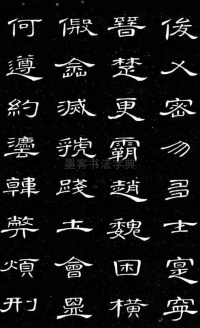 俊乂密勿多士寔寧
晉楚更霸趙魏困橫
假嵞滅虢踐土會盟
何遵約灋韓弊煩刑
墨客书法字典